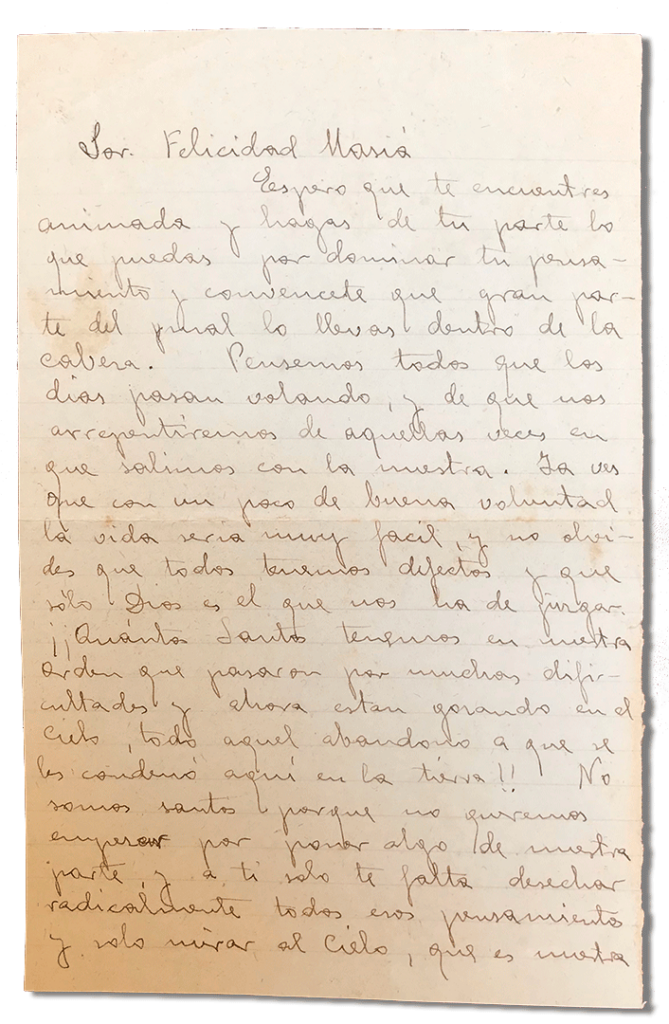 Sor. Felicidad Masiá
Espero que te encuentres
animada y hagas de tu parte lo
que puedas por dominar tu pensa-
miento y convencete que gran par-
te del mal lo llevas dentro de la
cabeza. Pensemos todos que los
dias pasan volando, y de que nos
arrepentiremos de aquellas veces en
que salimos con la nuestra. Ya ves
que con un poco de buena voluntad
la vida seria muy facil, y no olvi-
des que todos tenemos defectos y que
sólo Dios es el que nos ha de juzgar.
¡¡Cuántos Santos tenemos en nuestra
orden que pasaron por muchas difi-
cultades y ahora estan gozando en el
Cielo, todo aquel abandono a que se
les condenó aquí en la tierra!! No
somos santos porque no queremos
empezar por poner algo de nuestra
parte, y a ti solo te falta desechar
radicalmente todos esos pensamientos
y solo mirar al Cielo, que es nuestra